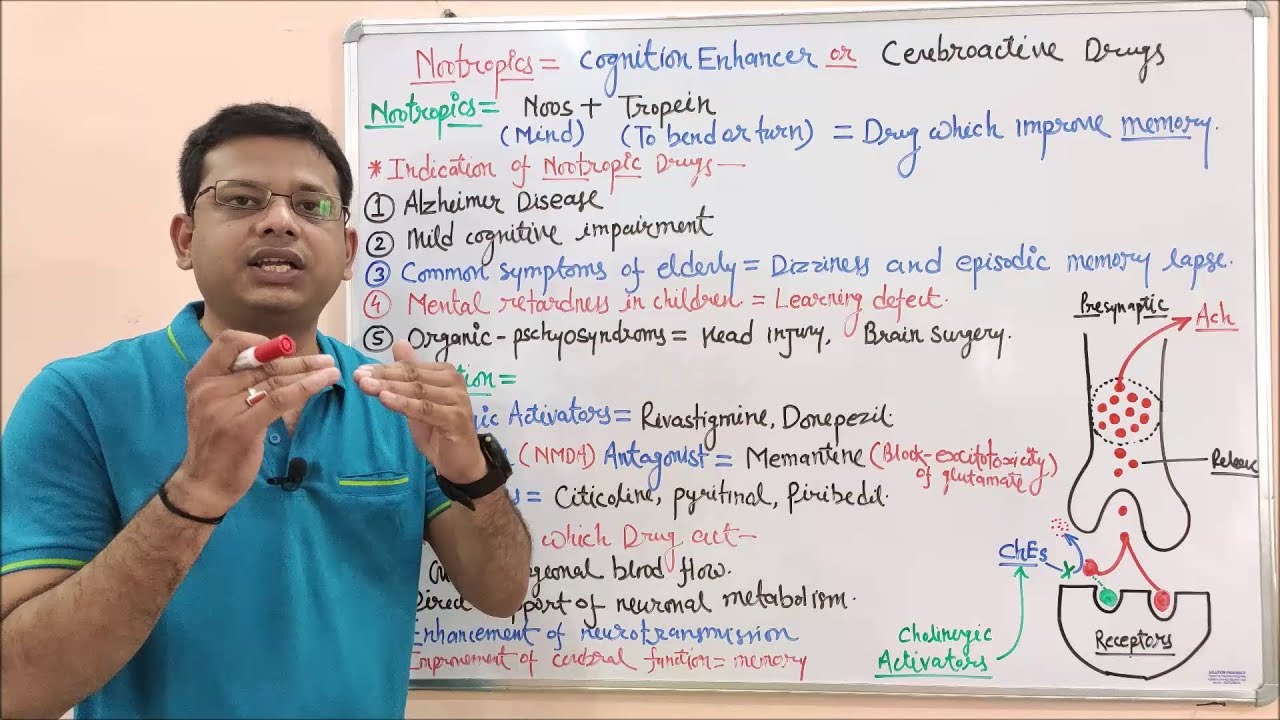 Nootropics = Cognition Enhancer or Cerebroactive Drugs
Nootropics = Noos + Tropein
(Mind) (To bend or turn) = Drug which improve memory.
* Indication of Nootropic Drugs—
1 Alzheimer Disease
2 Mild cognitive impairment
3 Common symptoms of elderly = Dizziness and episodic memory lapse.
4 Mental retardness in children = Learning defect.
5 Organic-pschyosyndroms = Head injury, Brain surgery.
=
Activators = Rivastigmine, Donepezil
(NMDA) Antagonist = Memantine (Block-excitotoxicity
of glutamate)
= Citicoline, pyritinal, Piribedil.
which Drug act—
blood flow.
of neuronal metabolism.
Enhancement of neurotransmission
Improvement of cerebral function = memory
Presynaptic
Ach
Release
ChEs
Receptors
Cholinergic
Activators